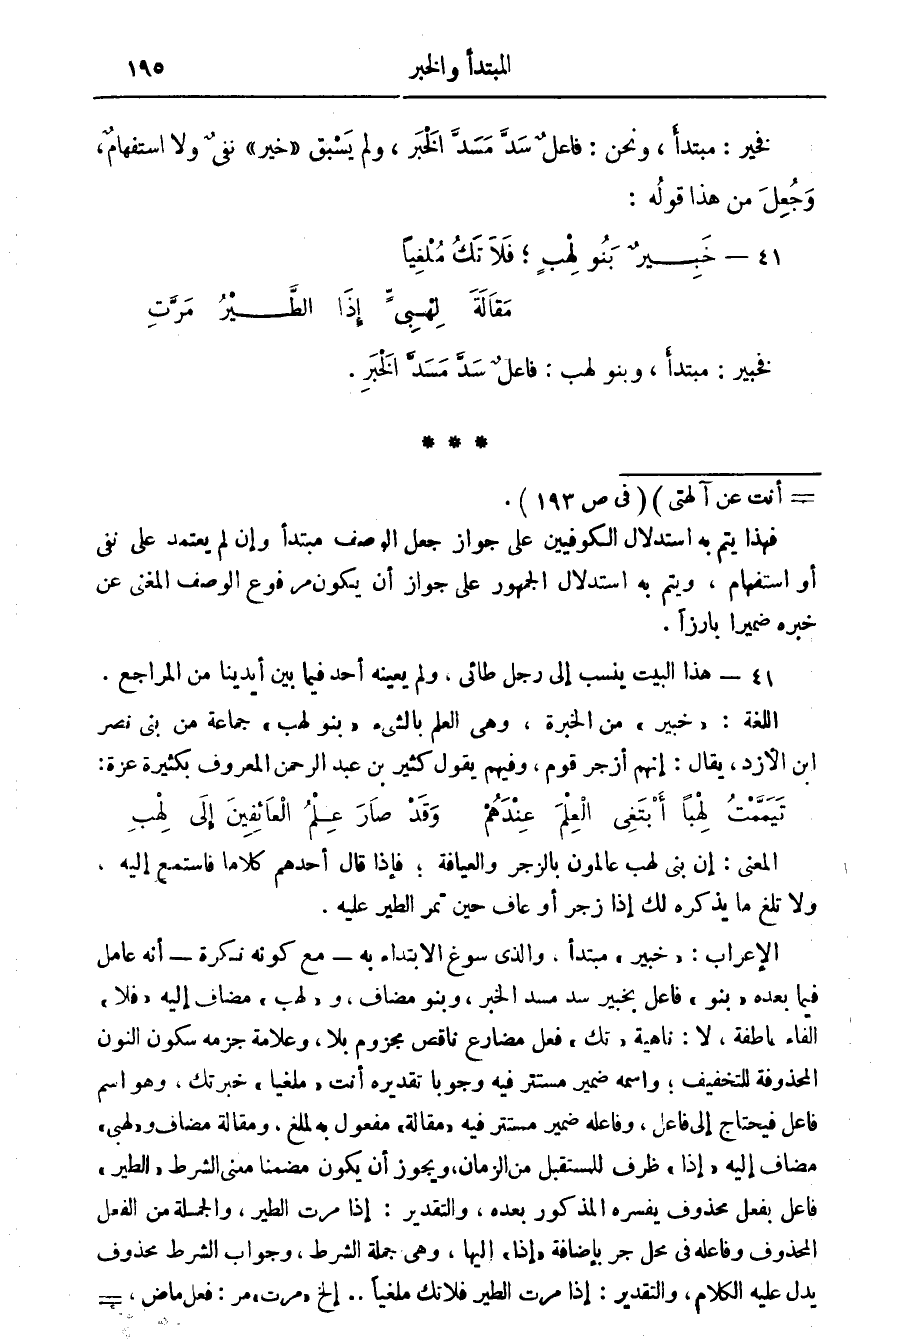 المبتدأ والخبر ١٩٥
فخير : مبتدأ ، ونحن : فاعلٌ سَدَّ مَسَدَّ الْخَبَر ، ولم يَسْبِق «خير» نفىٌ ولا استفهامٌ،
وَجُعِلَ من هذا قولُه :
٤١ — خَبِيــرٌ بَنُو لِهْبٍ ؛ فَلَا تَكُ مُلْغِياً
مَقَالَةَ لِهْبِىٍّ إِذَا الطَّــيْرُ مَرَّتِ
فخبير : مبتدأ ، وبنو لهب : فاعلٌ سَدَّ مَسَدَّ الْخَبَرِ .
* * *
= أنت عن آلهتى ) ( فى ص ١٩٣ ) .
فهذا يتم به استدلال الكوفيين على جواز جعل الوصف مبتدأ وإن لم يعتمد على نفى
أو استفهام ، ويتم به استدلال الجمهور على جواز أن يكون مرفوع الوصف المغنى عن
خبره ضميرا بارزاً .
٤١ — هذا البيت ينسب إلى رجل طائى ، ولم يعينه أحد فيما بين أيدينا من المراجع .
اللغة : « خبير » من الخبرة ، وهى العلم بالشىء « بنو لهب » جماعة من بنى نصر
ابن الأزد ، يقال : إنهم أزجر قوم ، وفيهم يقول كثير بن عبد الرحمن المعروف بكثيرة عزة :
تَيَمَّمْتُ لِهْباً أَبْتَغِى الْعِلْمَ عِنْدَهُمْ وَقَدْ صَارَ عِلْمُ الْعَائِفِينَ إِلَى لِهْبِ
المعنى : إن بنى لهب عالمون بالزجر والعيافة ؛ فإذا قال أحدهم كلاما فاستمع إليه ،
ولا تلغ ما يذكره لك إذا زجر أو عاف حين تمر الطير عليه .
الإعراب : « خبير » مبتدأ ، والذى سوغ الابتداء به — مع كونه نكرة — أنه عامل
فيما بعده « بنو » فاعل بخبير سد مسد الخبر ، وبنو مضاف ، و « لهب » مضاف إليه « فلا »
الفاء عاطفة ، لا : ناهية « تك » فعل مضارع ناقص مجزوم بلا ، وعلامة جزمه سكون النون
المحذوفة للتخفيف ؛ واسمه ضمير مستتر فيه وجوبا تقديره أنت « ملغيا » خبر تك ، وهو اسم
فاعل فيحتاج إلى فاعل ، وفاعله ضمير مستتر فيه «مقالة» مفعول به لملغ ، ومقالة مضاف و«لهبى»
مضاف إليه « إذا » ظرف للمستقبل من الزمان، ويجوز أن يكون مضمنا معنى الشرط « الطير »
فاعل بفعل محذوف يفسره المذكور بعده ، والتقدير : إذا مرت الطير ، والجملة من الفعل
المحذوف وفاعله فى محل جر بإضافة «إذا» إليها ، وهى جملة الشرط ، وجواب الشرط محذوف
يدل عليه الكلام ، والتقدير : إذا مرت الطير فلا تك ملغياً .. إلخ «مرت» مر : فعل ماض ، =